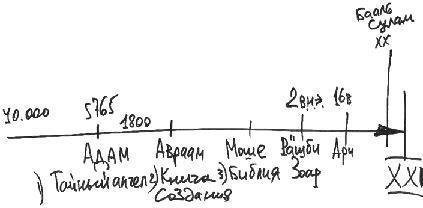 Бааль
Сулам
XX
40.000 5765 1800 2 в н.э. 16в
АДАМ Авраам Моше Рашби Ари
1) Тайный ангел 2) Книга 3) Библия Зоар XXI
Создания